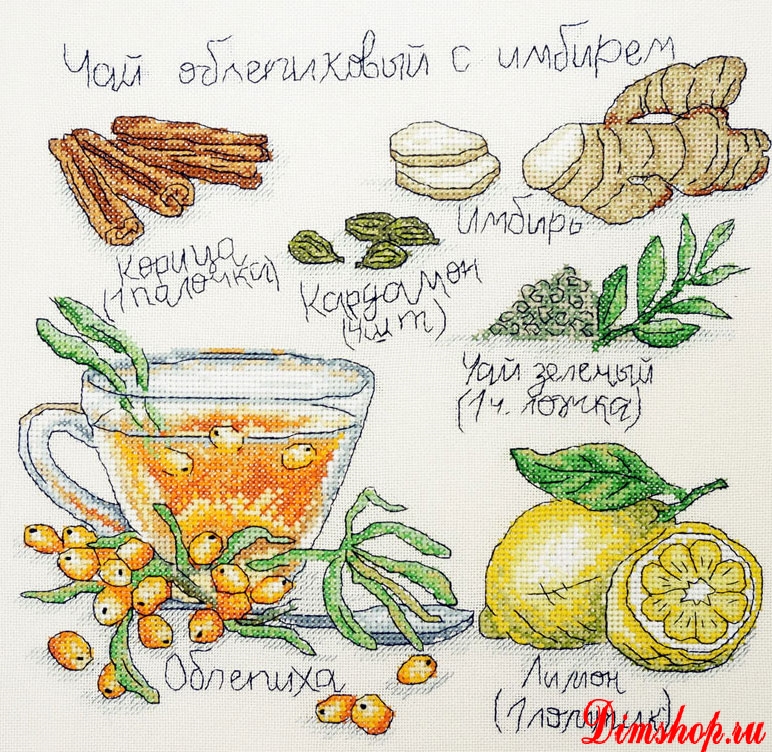 Чай облепилковый с имбирем
Имбирь
Корица
(1 палочка)
Кардамон
(4шт)
Чай зеленый
(1 ч. ложка)
Облепиха
Лимон
(1 ломтик)
Dimshop.ru